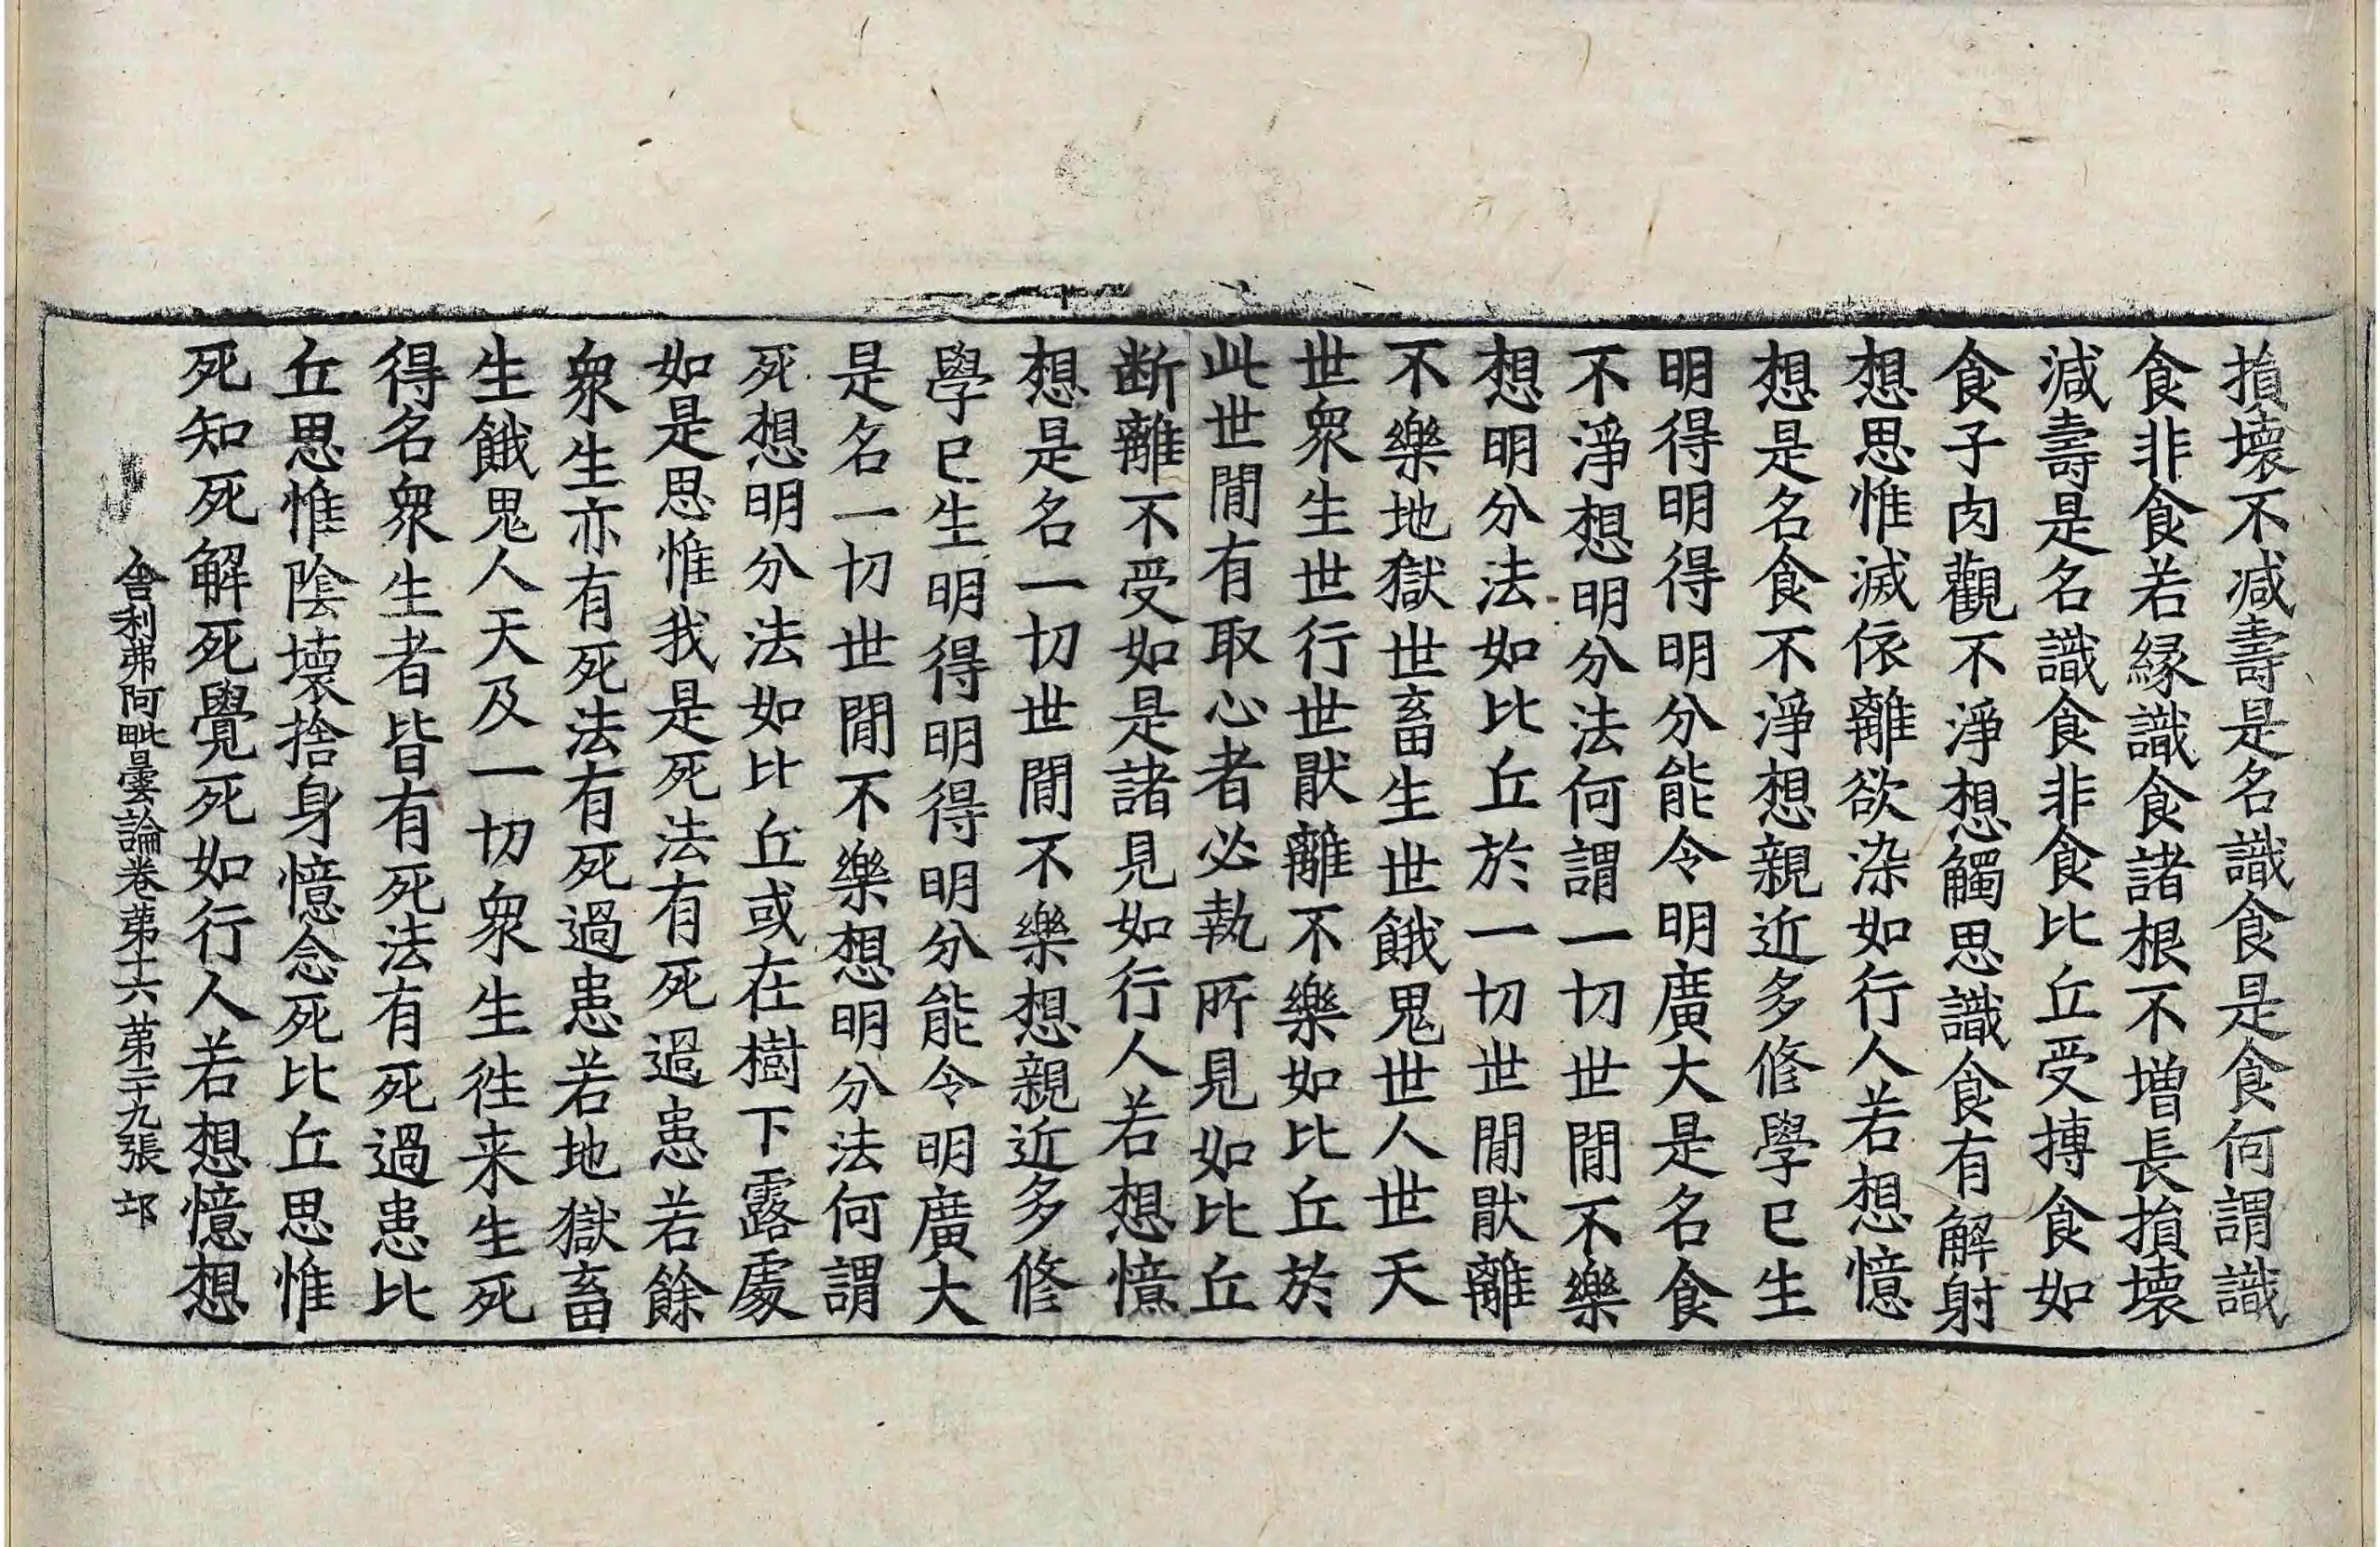 損壞不减壽是名識食是食何謂識
食非食若緣識食諸根不增長損壞
減壽是名識食非食比丘受摶食如
食子肉觀不淨想觸思識食有解射
想思惟滅依離欲染如行人若想憶
想是名食不淨想親近多修學已生
明得明得明分能令明廣大是名食
不淨想明分法何謂一切世間不樂
想明分法如比丘於一切世間猒離
不樂地獄世畜生世餓鬼世人世天
世衆生世行世猒離不樂如比丘於
此世間有取心者必執所見如比丘
断離不受如是諸見如行人若想憶
想是名一切世間不樂想親近多修
學已生明得明得明分能令明廣大
是名一切世間不樂想明分法何謂
死想明分法如比丘或在樹下露處
如是思惟我是死法有死過患若餘
衆生亦有死法有死過患若地獄畜
生餓鬼人天及一切衆生徃来生死
得名衆生者皆有死法有死過患比
丘思惟陰壞捨身憶念死比丘思惟
死知死解死覺死如行人若想憶想
舍利弗阿毗曇論卷苐十六苐二十九張 邙